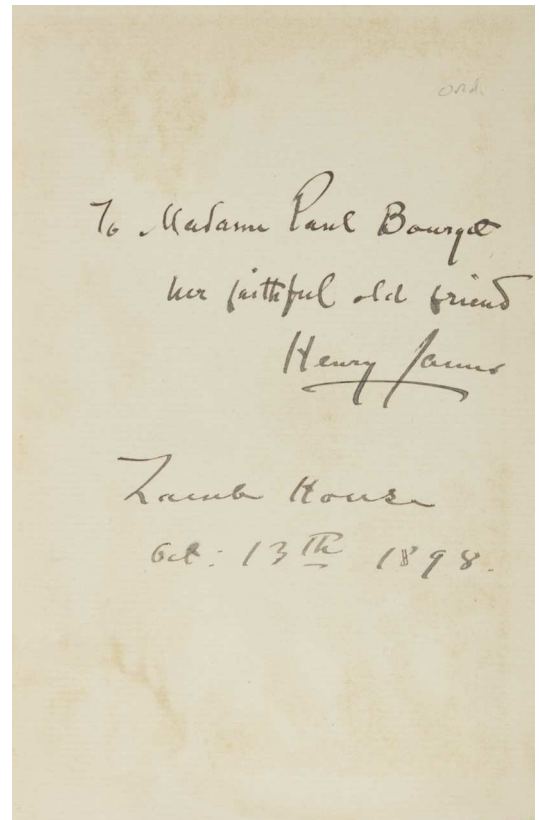 To Madame Paul Bourget
her faithful old friend
Henry James
Lamb House
Oct: 13th 1898.